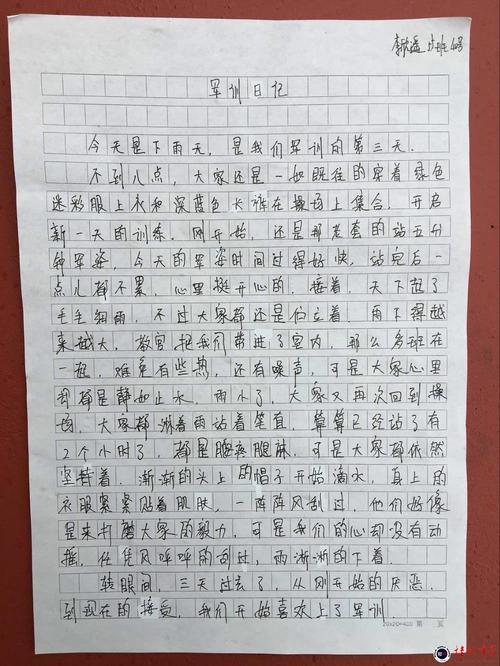 李 15班 4号
军训日记
今天是下雨天，是我们军训的第三天.
不到八点，大家还是一如既往的穿着绿色
迷彩服上衣和深蓝色长裤在操场上集合.开启
新一天的训练.刚开始，还是那老套的站五分
钟军姿，今天的军姿时间过得好快，站完后一
点儿都不累，心里挺开心的，接着，天下起了
毛毛细雨，不过大家都还是们立着.雨下得越
来越大，教官把我们带进了室内，那么多班在
一起，难免有些热，还有噪声，可是大家心里
却都是静如止水，雨小了，大家又再次回到操
场，大家都淋着雨站着笔直，算算已经站了有
2个小时了，都是腿疼腰麻，可是大家都依然
坚持着，渐渐的头上的帽子开始滴水，身上的
衣服紧紧贴着肌肤，一阵阵风刮过，他们好像
是来打磨大家的毅力，可是我们的心却没有动
摇，任凭风呼呼的刮过，雨淅淅的下着.
转眼间，三天过去了，从刚开始的厌恶，
到现在的接受，我们开始喜欢上了军训
20×20=400 页